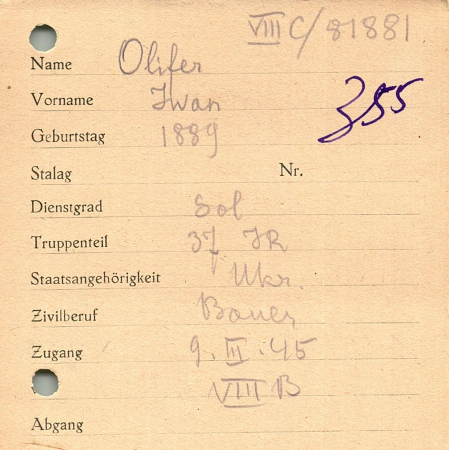 VIII C/81881
Name Olifer
Vorname Iwan
355
Geburtstag 1889
Stalag Nr.
Dienstgrad Sol
Truppenteil 37 IR
Staatsangehörigkeit Ukr.
Zivilberuf Bauer
Zugang 9. III. 45
VIII B
Abgang